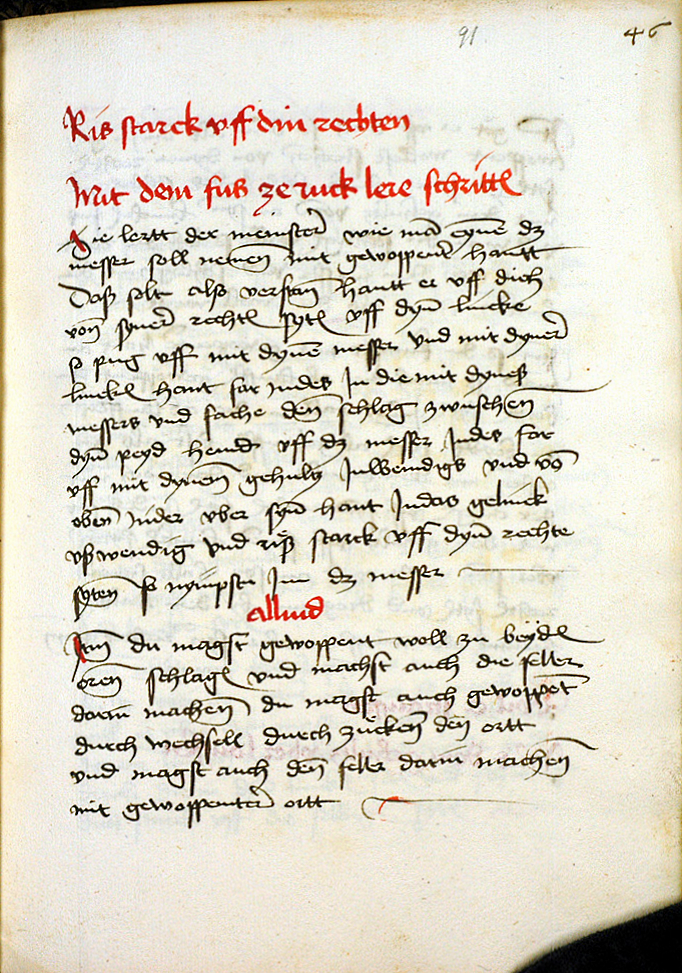 91
46
Ris starck vff din rechten
Mit dem fus ze ruck lere schrittē
Hie lertt der meinster wie mā eynē dz
messer soll nemen mit gewoppentr̄ hantt
Daß solt also verstan hautt er vff dich
von syner̄ rechtē sytē vff dyn̄ lincke
so pug vff mit dynē messer vnd mit dyner̄
linckē hant far Indes In die mit dynes
messers vnd fache den̄ schlag zwuschen̄
dyn̄ peyd hend vff dz messer Indes far
vff mit dynem̄ gehultz Inwendigs vnd vō
oben̄ nider vber syn̄ hant Indas gelinck
vßwendig vnd riß starck vff dyn̄ rechte
syten so nympstu Im dz messer
alliud
Itm̄ du magst gewoppent woll zu beydē
oren̄ schlagē vnd machst auch die feller
darin machen̄ du magst auch gewoppēt
durch wechsell durch zucken̄ den̄ ortt
vnd magst auch den̄ feler darin machen̄
mit gewoppenter̄ ortt